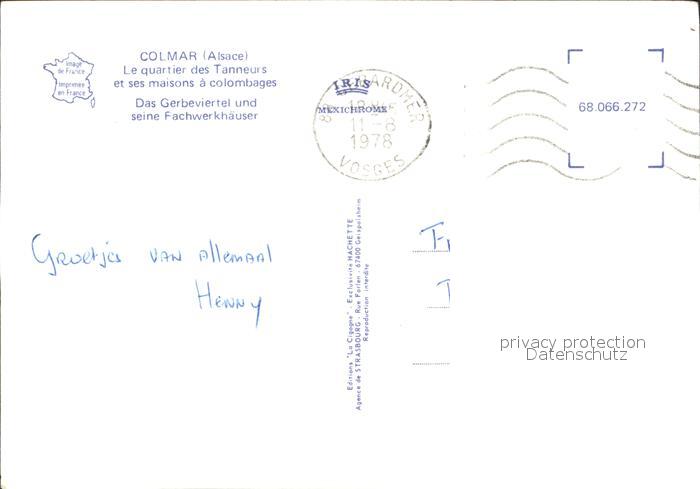 Image
de France
Imprimée
en France
COLMAR (Alsace)
Le quartier des Tanneurs
et ses maisons à colombages
Das Gerbeviertel und
seine Fachwerkhäuser
IRIS
MEXICHROME
GÉRARDMER
11-8
1978
VOSGES
68.066.272
Groetjes van allemaal
Henny
Editions "La Cigogne" - Exclusivité HACHETTE
Agence de STRASBOURG - Rue Forlen - 67400 Geispolsheim
Reproduction interdite
privacy protection
Datenschutz